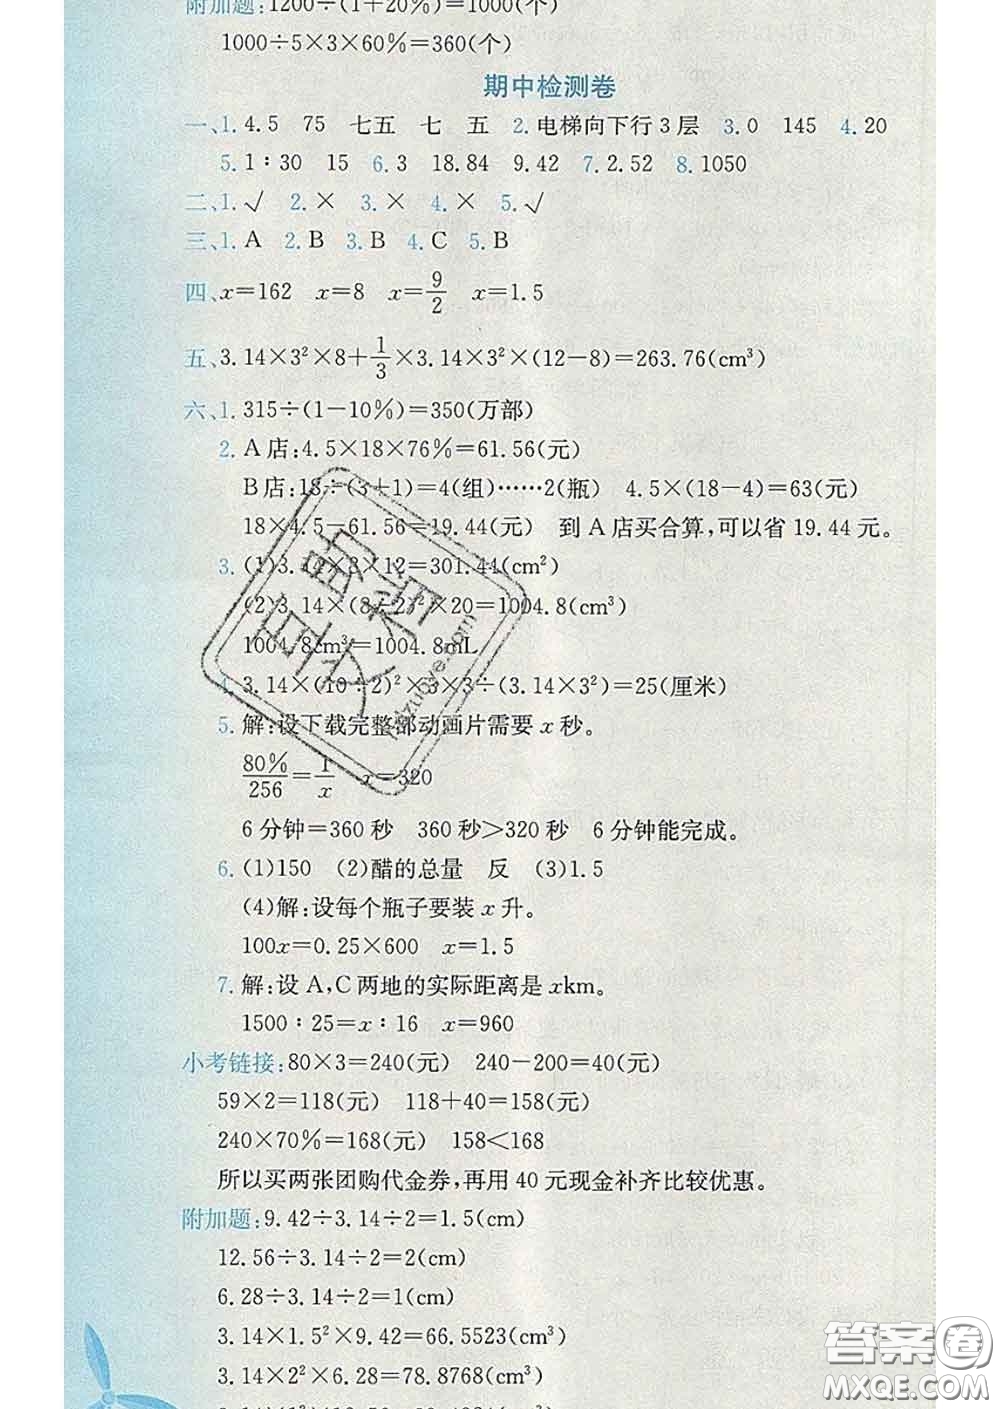 附加题:1200÷(1+20%)=1000(个)
1000÷5×3×60%=360(个)
期中检测卷
一、1.4.5 75 七五 七 五 2.电梯向下行3层 3.0 145 4.20
5.1∶30 15 6.3 18.84 9.42 7.2.52 8.1050
二、1.√ 2.× 3.× 4.× 5.√
三、1.A 2.B 3.B 4.C 5.B
四、x=162 x=8 x=9/2 x=1.5
五、3.14×3²×8+1/3×3.14×3²×(12-8)=263.76(cm³)
六、1.315÷(1-10%)=350(万部)
2.A店:4.5×18×76%=61.56(元)
B店:18÷(3+1)=4(组)……2(瓶) 4.5×(18-4)=63(元)
18×4.5-61.56=19.44(元) 到A店买合算,可以省19.44元。
3.(1)3.14×8×12=301.44(cm²)
(2)3.14×(8÷2)²×20=1004.8(cm³)
1004.8cm³=1004.8mL
4.3.14×(10÷2)²×3×3÷(3.14×3²)=25(厘米)
5.解:设下载完整部动画片需要x秒。
80%/256=1/x x=320
6分钟=360秒 360秒>320秒 6分钟能完成。
6.(1)150 (2)醋的总量 反 (3)1.5
(4)解:设每个瓶子要装x升。
100x=0.25×600 x=1.5
7.解:设A,C两地的实际距离是xkm。
1500∶25=x∶16 x=960
小考链接:80×3=240(元) 240-200=40(元)
59×2=118(元) 118+40=158(元)
240×70%=168(元) 158<168
所以买两张团购代金券,再用40元现金补齐比较优惠。
附加题:9.42÷3.14÷2=1.5(cm)
12.56÷3.14÷2=2(cm)
6.28÷3.14÷2=1(cm)
3.14×1.5²×9.42=66.5523(cm³)
3.14×2²×6.28=78.8768(cm³)
答案圈
MXQE.COM